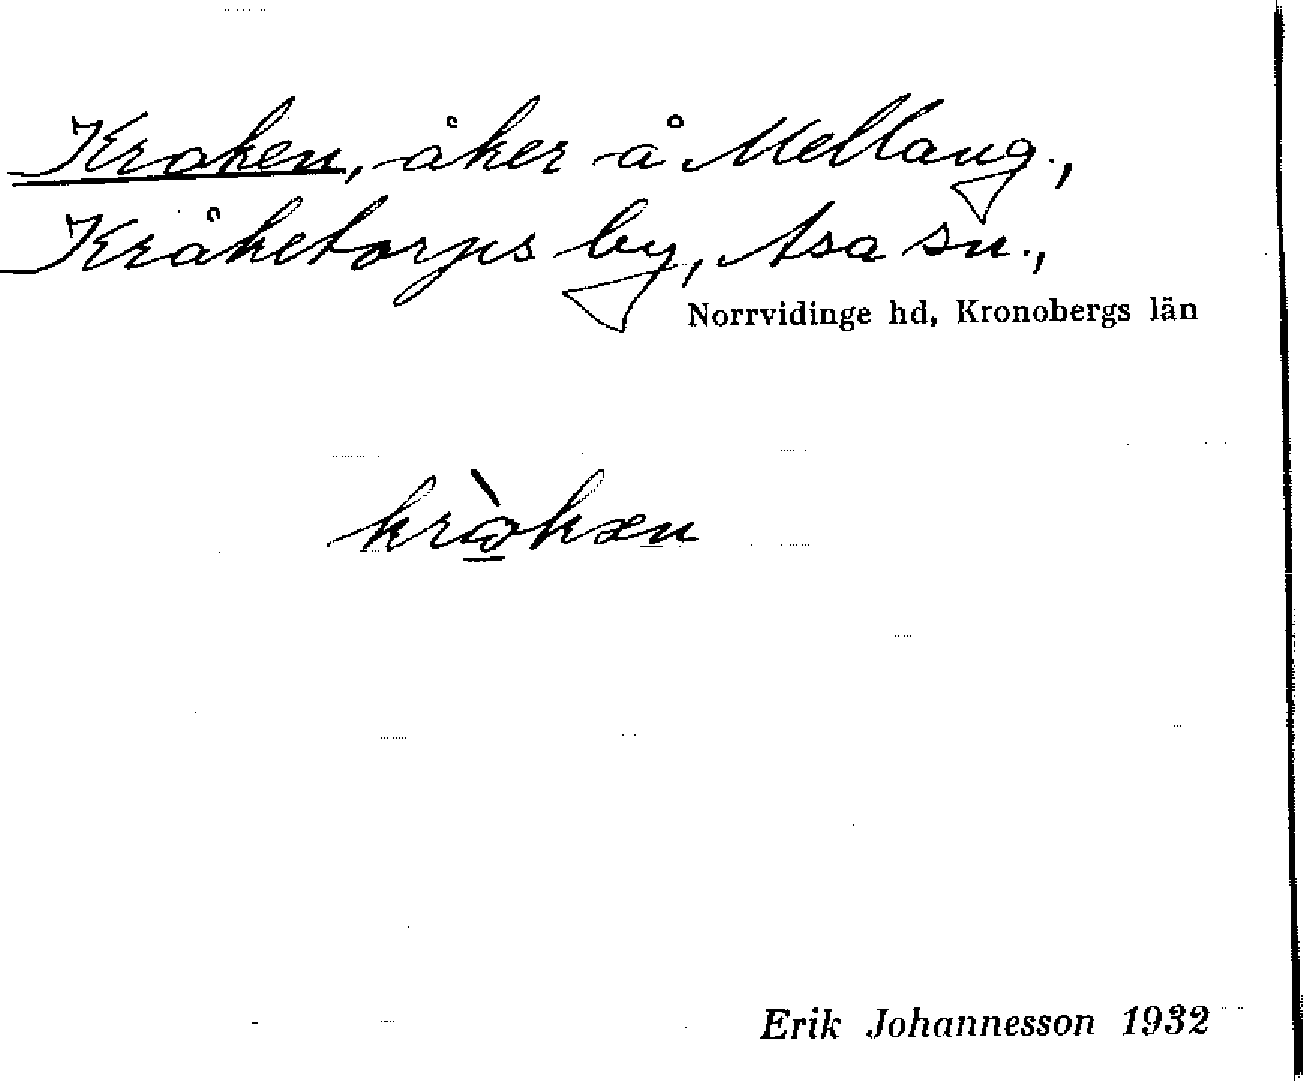 Kraken, åker å Mellang.,
Kråketorps by, Asa sn.,
Norrvidinge hd, Kronobergs län
Erik Johannesson 1932